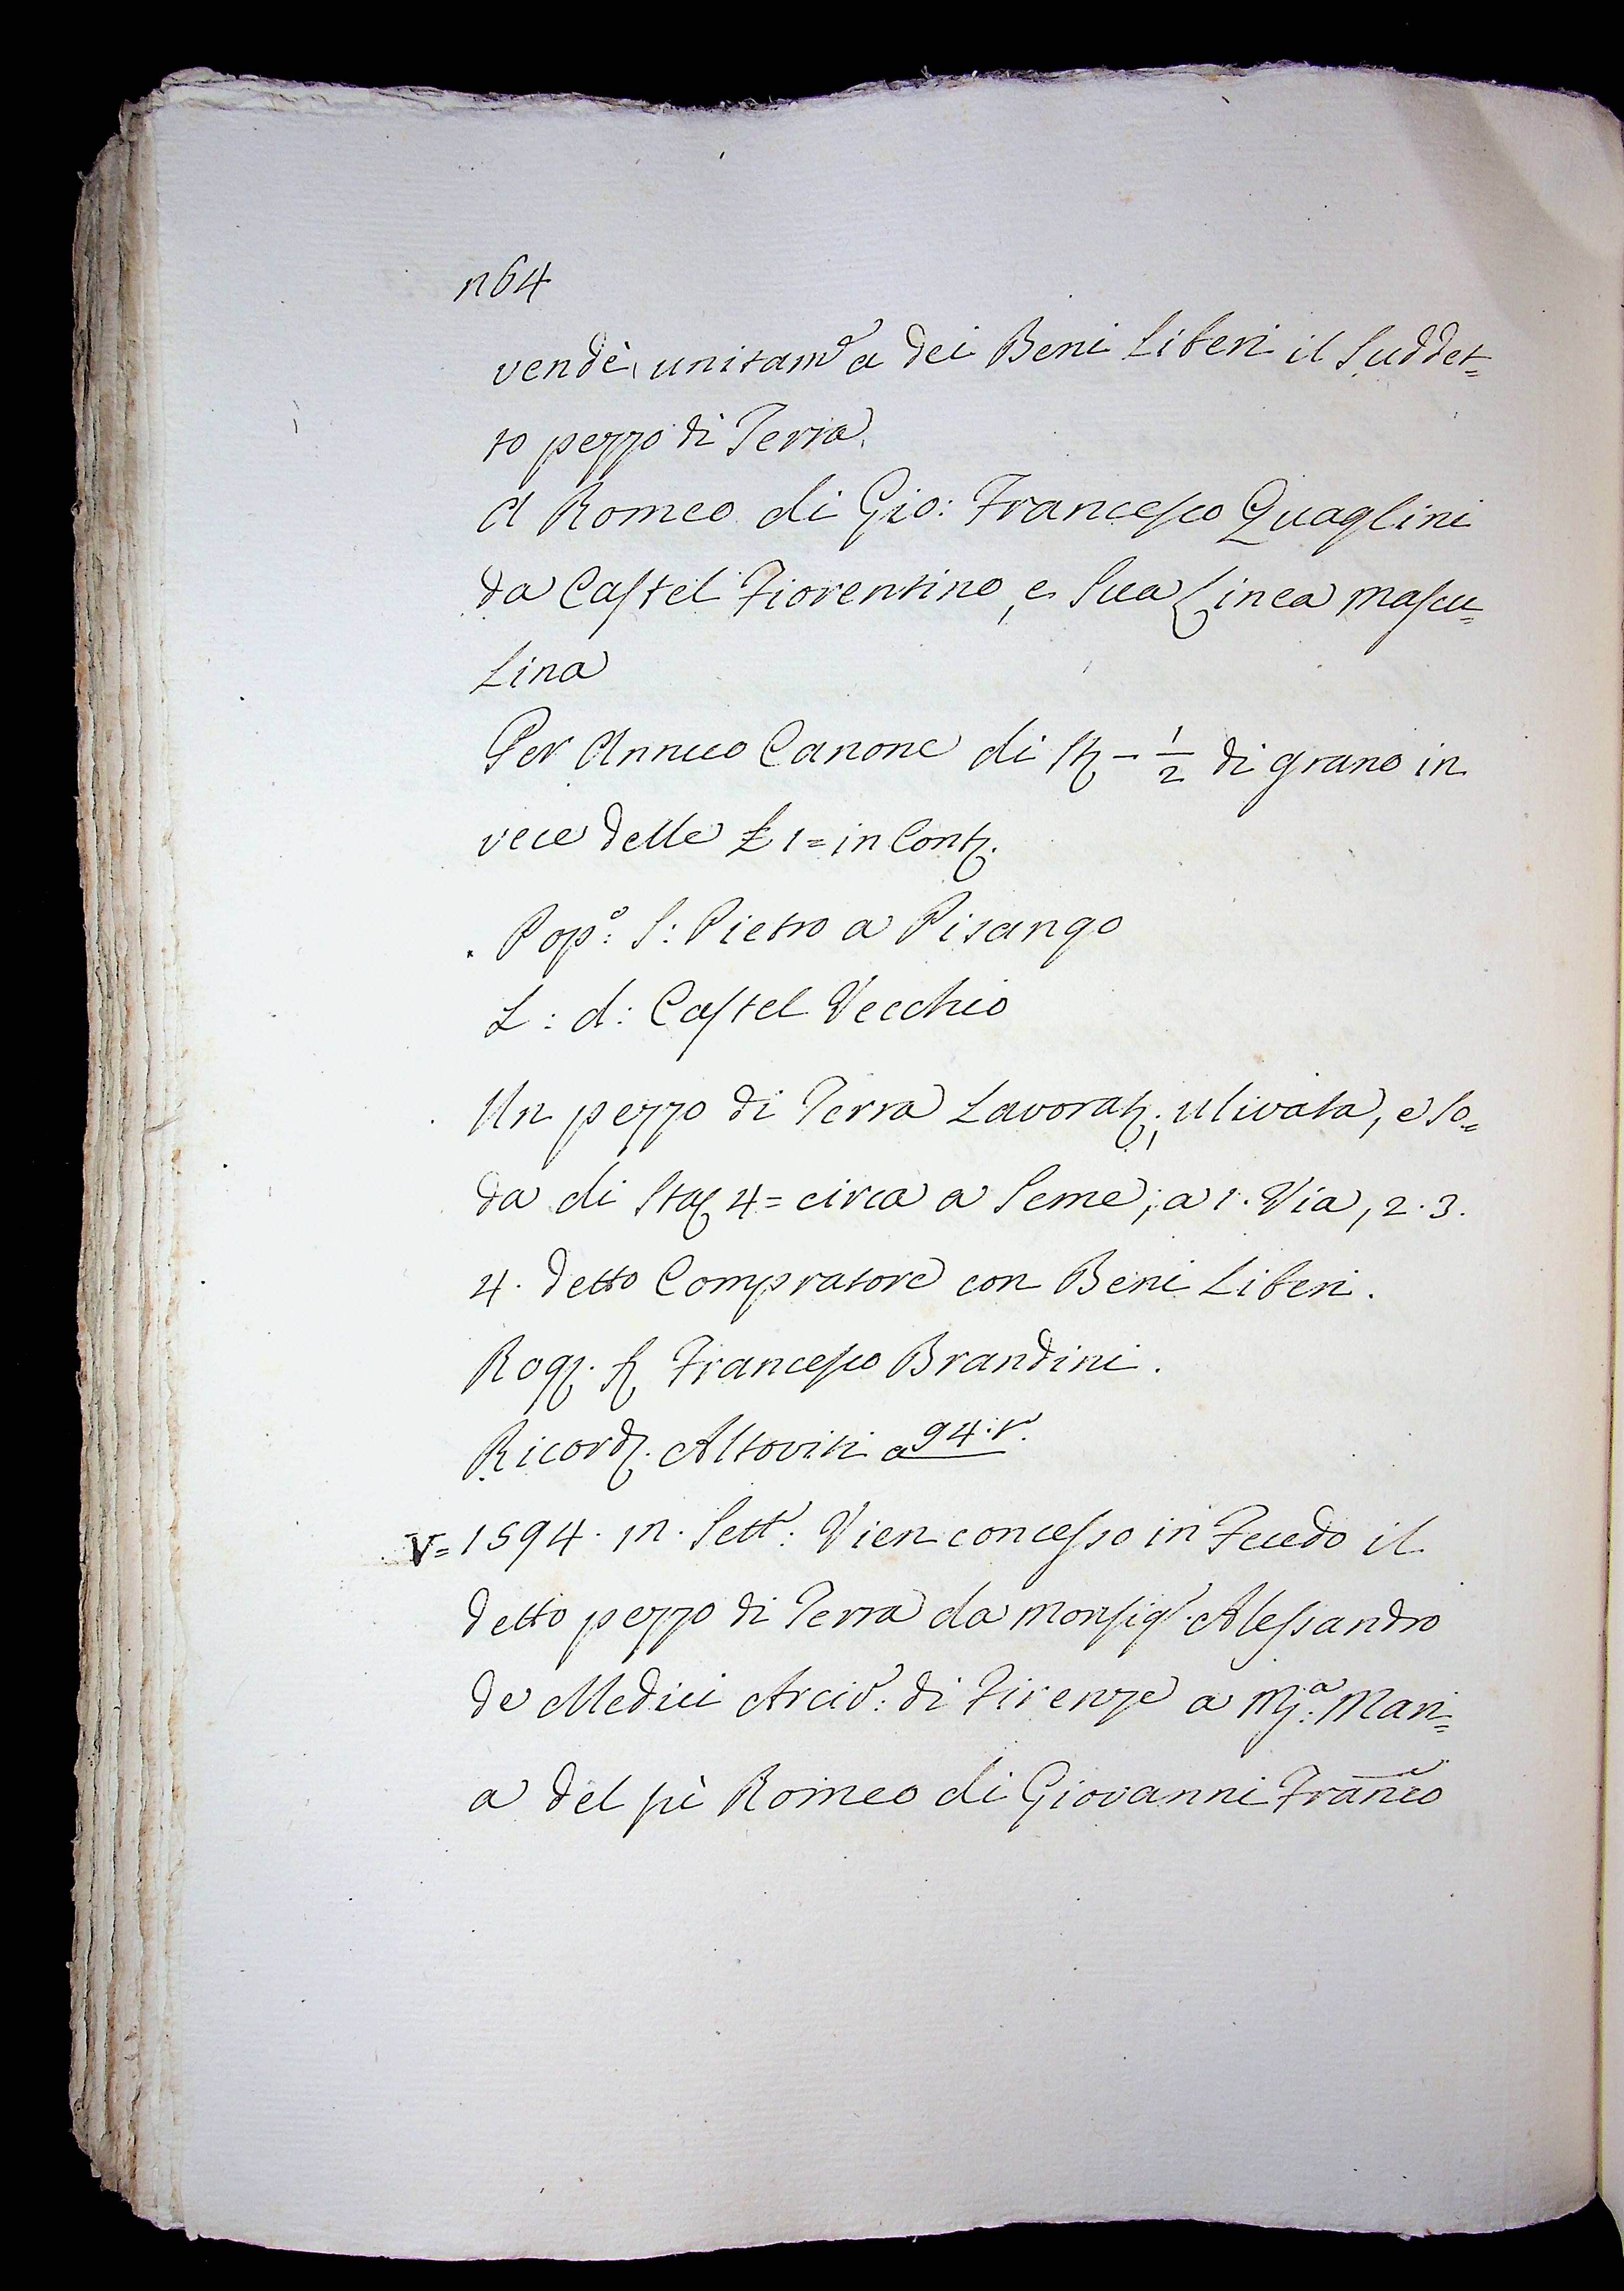 n 64
vendè, unitam.e a dei Beni Liberi il Suddet=
to pezzo di Terra.
A Romeo di Gio: Francesco Quaglini
da Castel Fiorentino, e Sua Linea mascu=
Lina
Per Annuo Canone di St. - 1/2 di grano in
vece delle £ 1 = in Cont.
Pop.o: S: Pietro a Pisango
L: d: Castel Vecchio
Un pezzo di Terra Lavorat.; ulivata, e so=
da di Sta. 4 = circa a Seme; a 1. Via, 2. 3.
4. detto Compratore con Beni Liberi.
Rog. Francesco Brandini.
Ricord. Altoviti a 94. t.
V= 1594. m. Sett.e: Vien concesso in Feudo il
detto pezzo di Terra da Monsig.r Alessandro
de Medici Arciv.: di Firenze a M.a: Mari=
a del fù Romeo di Giovanni Franco